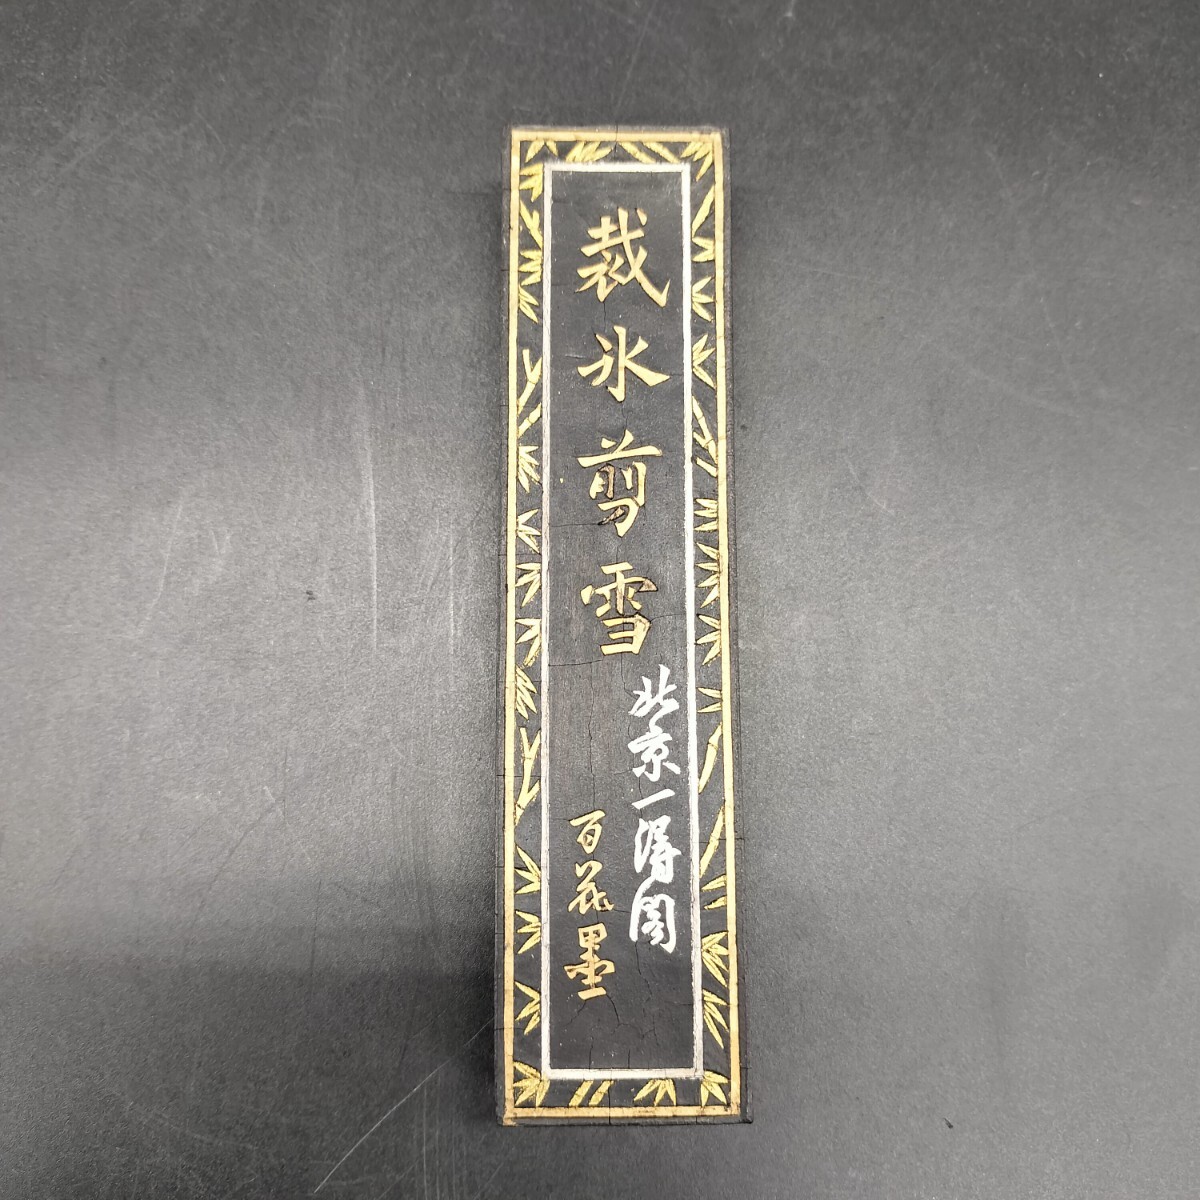 裁氷剪雪
北京一得閣
百花墨